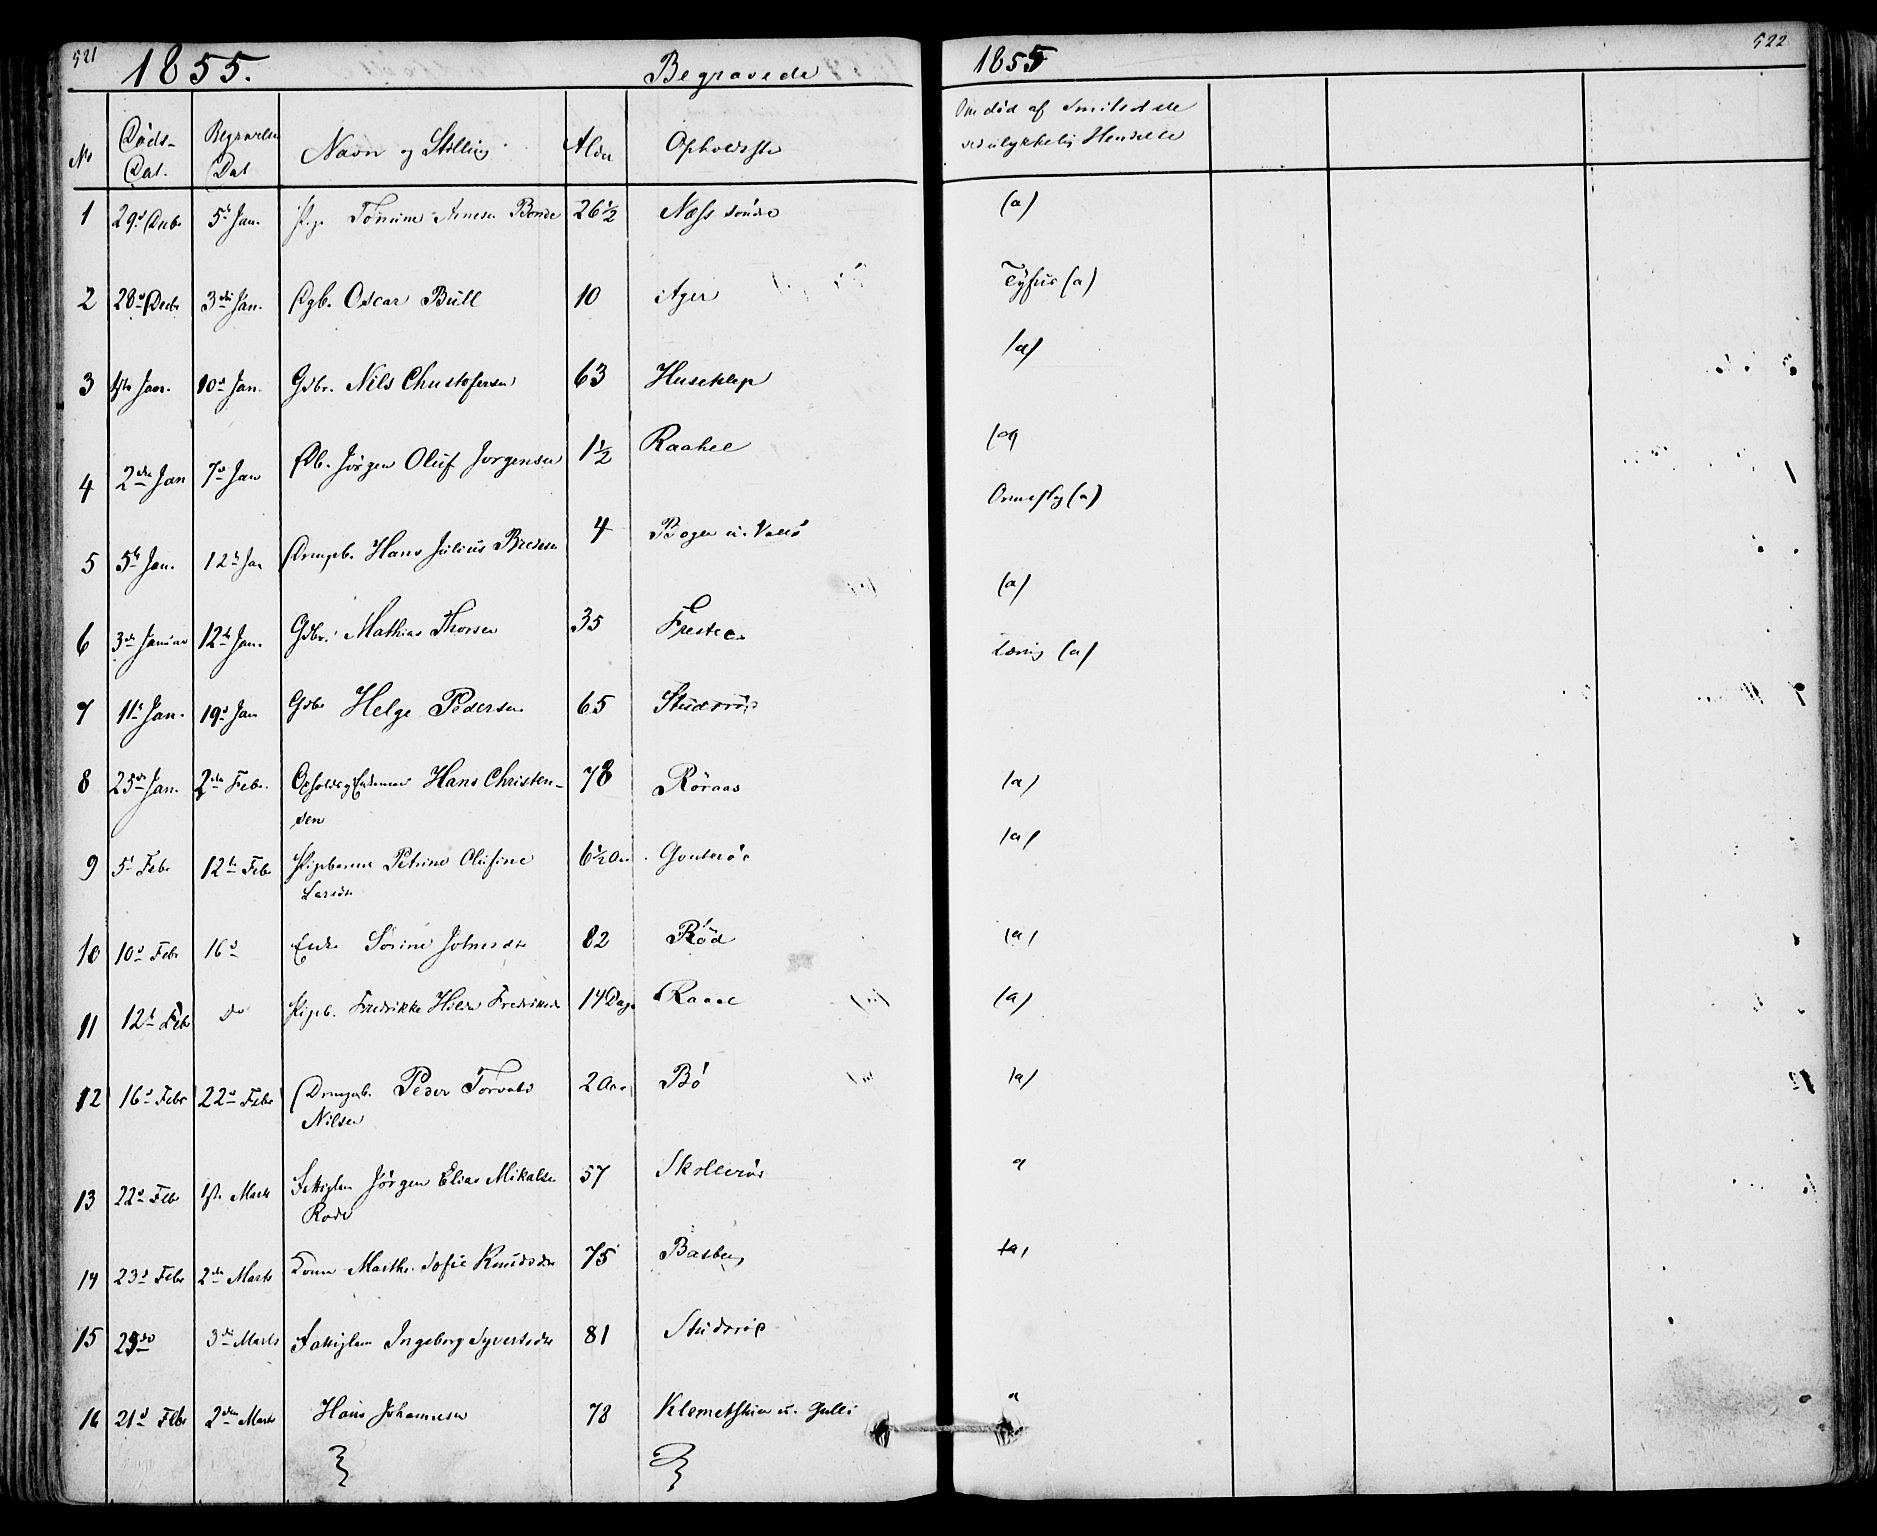 521 1855. Begravede
No Døds- Dat. Begravelses Dat Navn og Stilling Alder Opholdsste
1 29d Decbr 5t Jan. Pige Tonine Arnesen Bonde 26 1/2 Næss søndre
2 28d Decbr 3die Jan. Dgb. Oscar Bull 10 Ager
3 4de Jan. 10d Jan. Gdbr. Nils Christofersen 63 Huseklep
4 2den Jan 7d Jan Db. Jørgen Oluf Jorgensen 1 1/2 Raakel
5 5te Jan. 12te Jan Drengeb. Hans Julius Bredesen 4 Bogen u. Vallø
6 3die Januar 12te Jan. Gdbr. Mathias Thorsen 35 Freste
7 11te Jan. 19d Jan Gdbr Helge Pedersen 65 Studsrød
8 25de Jan. 2den Febr. Opholds og Enkemand Hans Christen-
sen 78 Røraas
9 5t Febr 12te Febr Pigebarnet Petrine Olufine
Larsdtr 6 1/2 Aar Gouterød
10 10d Febr 16d Enke Sørine Johnsdtr 82 Rød
11 12t Feb do Pigeb. Fredrikke Hilda Fredriksdtr 14 Dage Raael
12 16d Febr 22d Febr Drengeb. Peder Torvald
Nilsen 2 Aar Bø
13 22d Feb 1ste Marts Fattiglem Jørgen Elias Mikalsen
Rode 57 Skallerød
14 23d Febr 2den Marts Konen Marthe Sofie Knudsdtr 75 Basberg
15 23do 3die Marts Fattiglem Ingeborg Syvertsdtr 81 Studsrød
16 21d Febr 2den Marts Hans Johannesen 78 Klemetstuen u. Gulli
1855 522
Om død af Smitsot eller
ved ulykkelig Hendelse
(a)
Tyfus (a)
(a)
(a)
Ormesyg (a)
(a)
Tæring (a)
(a)
(a)
(a)
(a)
(a)
a
(a)
a